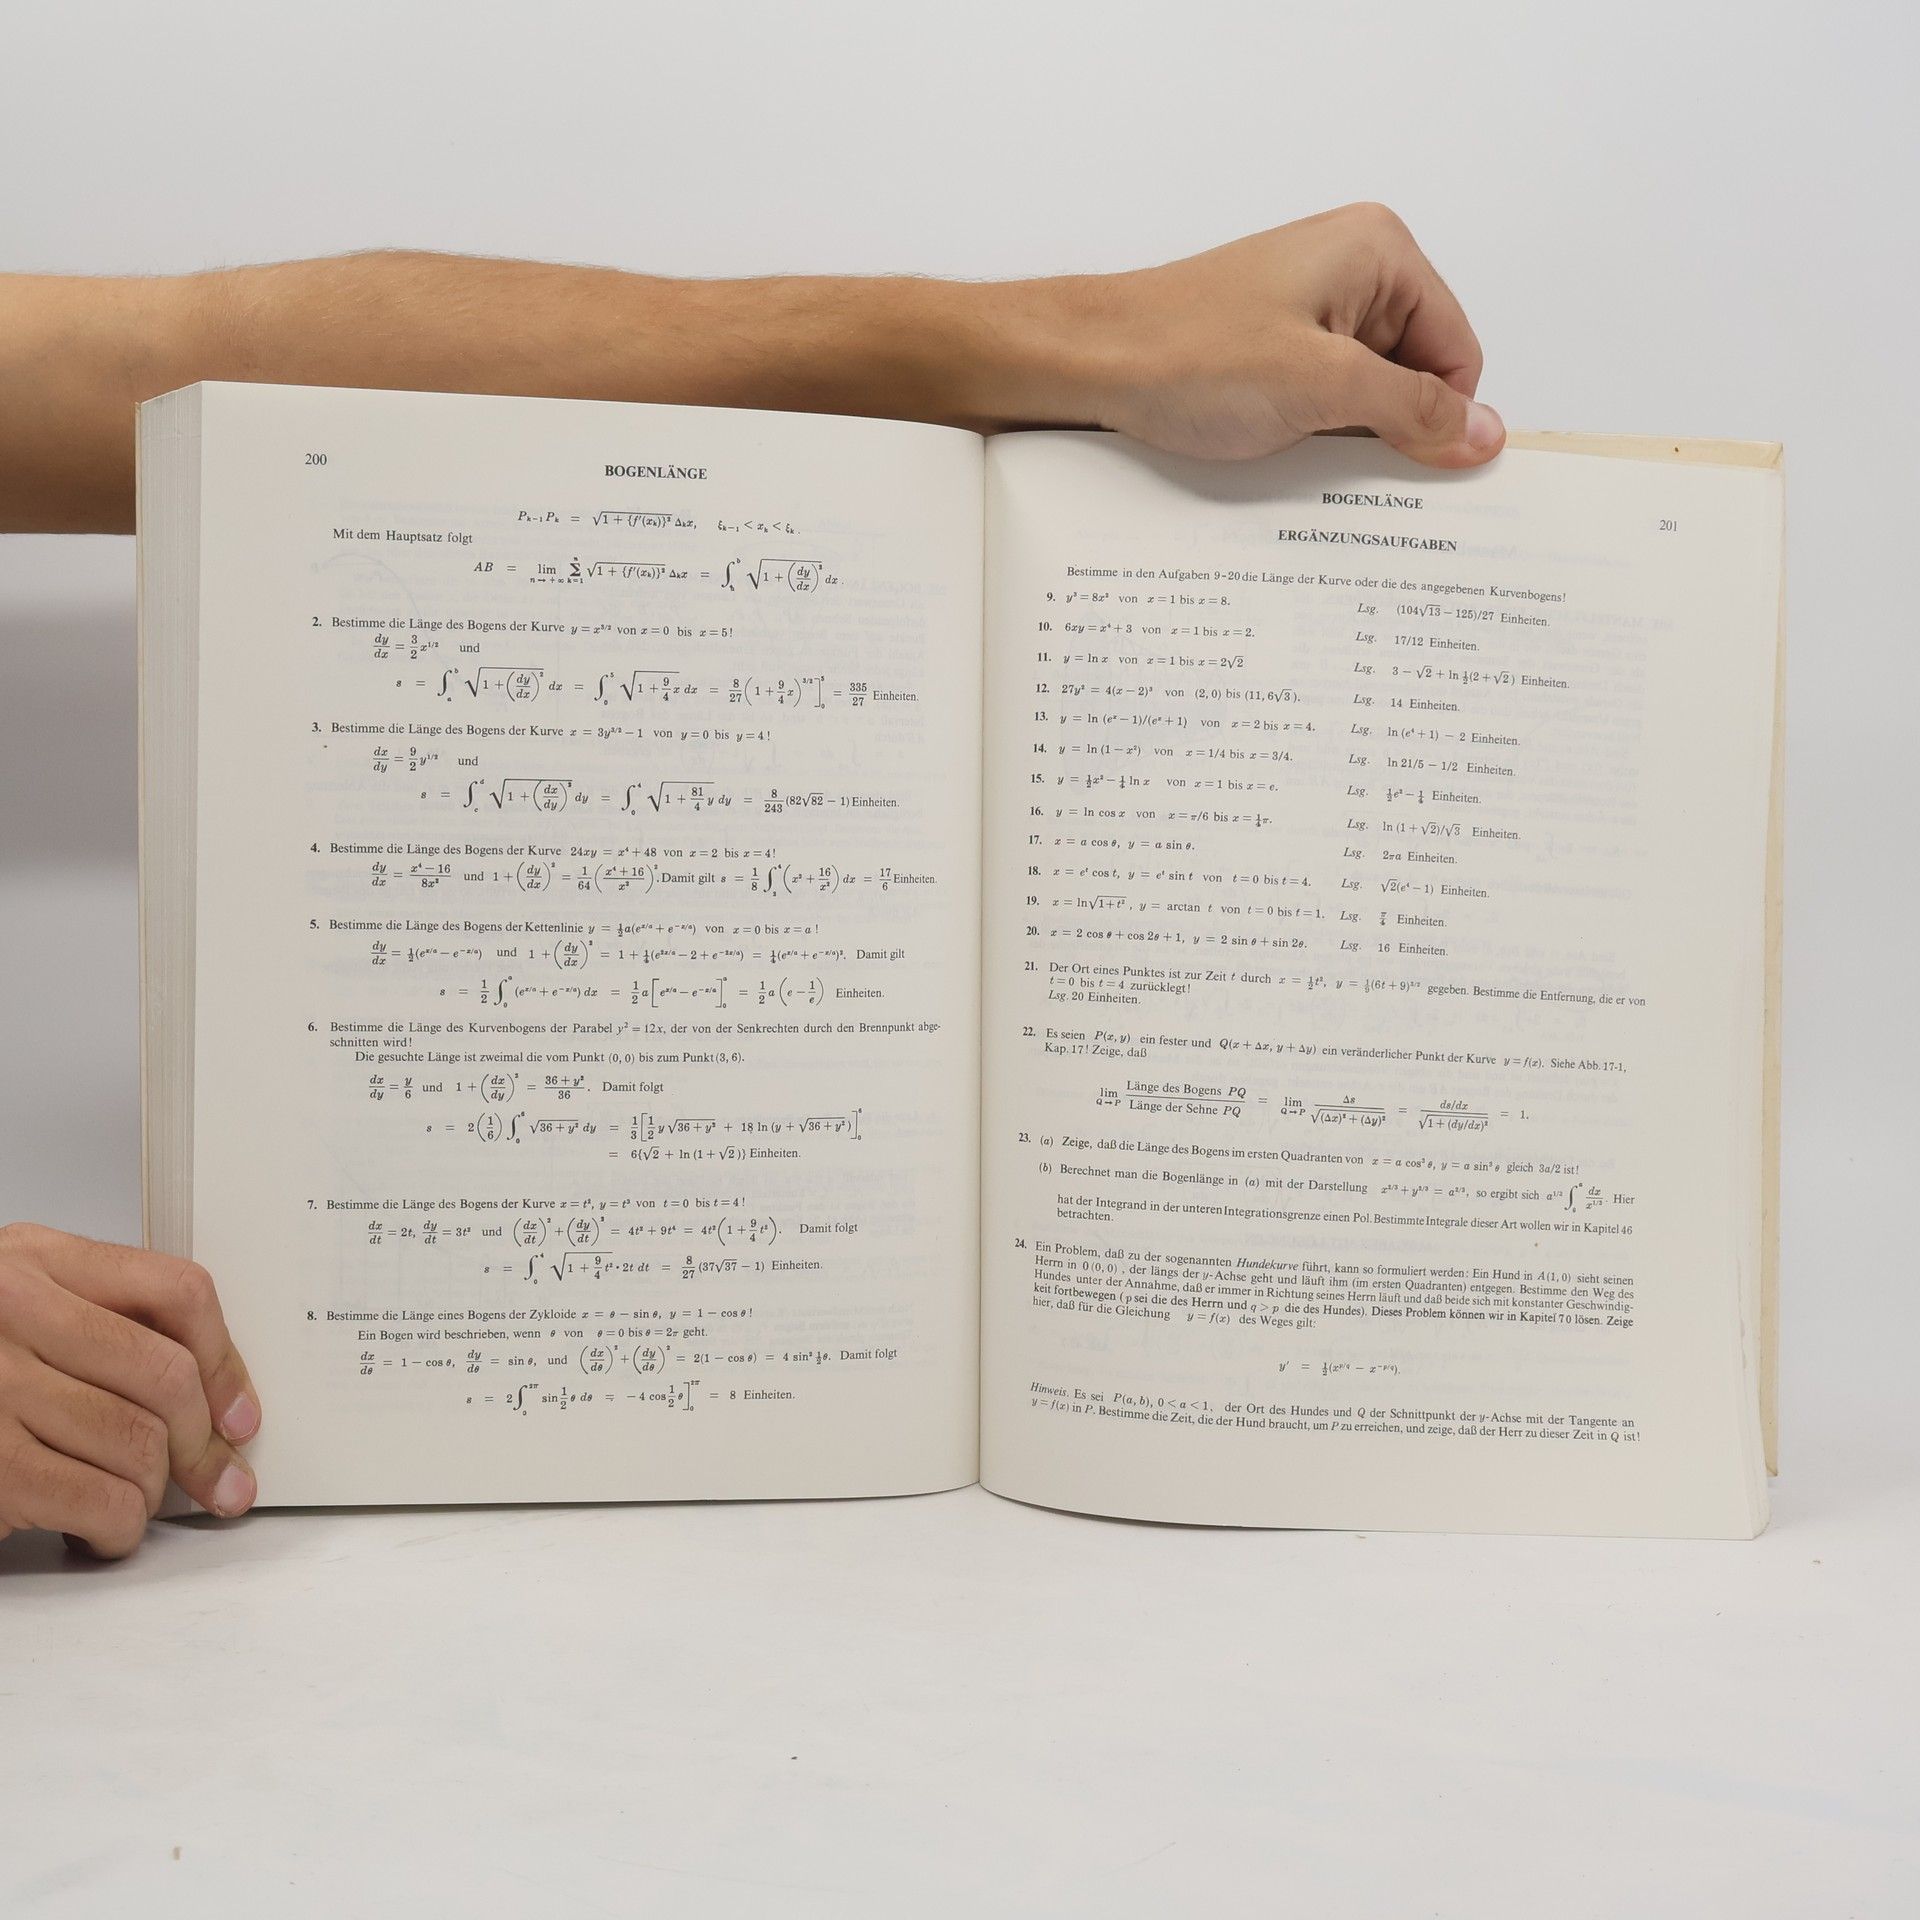 200
BOGENLÄNGE
Pₖ₋₁Pₖ = √(1 + {f′(xₖ)}²) Δₖx, ξₖ₋₁ < xₖ < ξₖ .
Mit dem Hauptsatz folgt
AB = lim n→+∞ Σ k=1 n √(1 + {f′(xₖ)}²) Δₖx = ∫ √(1 + (dy/dx)²) dx .
2. Bestimme die Länge des Bogens der Kurve y = x^(3/2) von x = 0 bis x = 5!
dy/dx = 3/2 x^(1/2) und
s = ∫ₐᵇ √(1 + (dy/dx)²) dx = ∫₀⁵ √(1 + 9/4 x) dx = 8/27 (1 + 9/4 x)^(3/2) ]₀⁵ = 335/27 Einheiten.
3. Bestimme die Länge des Bogens der Kurve x = 3y^(3/2) − 1 von y = 0 bis y = 4!
dx/dy = 9/2 y^(1/2) und
s = ∫ √(1 + (dx/dy)²) dy = ∫₀⁴ √(1 + 81/4 y) dy = 8/243 (82√82 − 1) Einheiten.
4. Bestimme die Länge des Bogens der Kurve 24xy = x⁴ + 48 von x = 2 bis x = 4!
dy/dx = (x⁴ − 16)/8x² und 1 + (dy/dx)² = 1/64 ((x⁴ + 16)/x²)². Damit gilt s = 1/8 ∫₂⁴ (x² + 16/x²) dx = 17/6 Einheiten.
5. Bestimme die Länge des Bogens der Kettenlinie y = ½a(e^(x/a) + e^(−x/a)) von x = 0 bis x = a !
dy/dx = ½(e^(x/a) − e^(−x/a)) und 1 + (dy/dx)² = 1 + ¼(e^(2x/a) − 2 + e^(−2x/a)) = ¼(e^(x/a) + e^(−x/a))². Damit gilt
s = 1/2 ∫₀ᵃ (e^(x/a) + e^(−x/a)) dx = 1/2 a [e^(x/a) − e^(−x/a)]₀ᵃ = 1/2 a (e − 1/e) Einheiten.
6. Bestimme die Länge des Kurvenbogens der Parabel y² = 12x, der von der Senkrechten durch den Brennpunkt abge-
schnitten wird!
Die gesuchte Länge ist zweimal die vom Punkt (0, 0) bis zum Punkt (3, 6).
dx/dy = y/6 und 1 + (dx/dy)² = (36 + y²)/36 . Damit folgt
s = 2(1/6) ∫₀⁶ √(36 + y²) dy = 1/3 [1/2 y √(36 + y²) + 18 ln (y + √(36 + y²))]₀⁶
= 6{√2 + ln (1 + √2)} Einheiten.
7. Bestimme die Länge des Bogens der Kurve x = t², y = t³ von t = 0 bis t = 4!
dx/dt = 2t, dy/dt = 3t² und (dx/dt)² + (dy/dt)² = 4t² + 9t⁴ = 4t²(1 + 9/4 t²). Damit folgt
s = ∫₀⁴ √(1 + 9/4 t²) · 2t dt = 8/27 (37√37 − 1) Einheiten.
8. Bestimme die Länge eines Bogens der Zykloide x = θ − sin θ, y = 1 − cos θ !
Ein Bogen wird beschrieben, wenn θ von θ = 0 bis θ = 2π geht.
dx/dθ = 1 − cos θ, dy/dθ = sin θ, und (dx/dθ)² + (dy/dθ)² = 2(1 − cos θ) = 4 sin² ½θ. Damit folgt
s = 2∫₀²ᵖⁱ sin 1/2 θ dθ = −4 cos 1/2 θ ]₀²ᵖⁱ = 8 Einheiten.
BOGENLÄNGE
201
ERGÄNZUNGSAUFGABEN
Bestimme in den Aufgaben 9-20 die Länge der Kurve oder die des angegebenen Kurvenbogens!
9. y³ = 8x² von x = 1 bis x = 8. Lsg. (104√13 − 125)/27 Einheiten.
10. 6xy = x⁴ + 3 von x = 1 bis x = 2. Lsg. 17/12 Einheiten.
11. y = ln x von x = 1 bis x = 2√2 Lsg. 3 − √2 + ln ½(2 + √2) Einheiten.
12. 27y² = 4(x − 2)³ von (2, 0) bis (11, 6√3). Lsg. 14 Einheiten.
13. y = ln (eˣ − 1)/(eˣ + 1) von x = 2 bis x = 4. Lsg. ln (e⁴ + 1) − 2 Einheiten.
14. y = ln (1 − x²) von x = 1/4 bis x = 3/4. Lsg. ln 21/5 − 1/2 Einheiten.
15. y = ½x² − ¼ ln x von x = 1 bis x = e. Lsg. ½e² − ¼ Einheiten.
16. y = ln cos x von x = π/6 bis x = ¼π. Lsg. ln (1 + √2)/√3 Einheiten.
17. x = a cos θ, y = a sin θ. Lsg. 2πa Einheiten.
18. x = eᵗ cos t, y = eᵗ sin t von t = 0 bis t = 4. Lsg. √2(e⁴ − 1) Einheiten.
19. x = ln√(1 + t²), y = arctan t von t = 0 bis t = 1. Lsg. π/4 Einheiten.
20. x = 2 cos θ + cos 2θ + 1, y = 2 sin θ + sin 2θ. Lsg. 16 Einheiten.
21. Der Ort eines Punktes ist zur Zeit t durch x = ½t², y = (6t + 9)^(3/2) gegeben. Bestimme die Entfernung, die er von
t = 0 bis t = 4 zurücklegt!
Lsg. 20 Einheiten.
22. Es seien P(x, y) ein fester und Q(x + Δx, y + Δy) ein veränderlicher Punkt der Kurve y = f(x). Siehe Abb. 17-1,
Kap. 17! Zeige, daß
lim Q→P Länge des Bogens PQ / Länge der Sehne PQ = lim Q→P Δs/√((Δx)² + (Δy)²) = (ds/dx)/√(1 + (dy/dx)²) = 1.
23. (a) Zeige, daß die Länge des Bogens im ersten Quadranten von x = a cos³ θ, y = a sin³ θ gleich 3a/2 ist!
(b) Berechnet man die Bogenlänge in (a) mit der Darstellung x^(2/3) + y^(2/3) = a^(2/3), so ergibt sich a^(1/3) ∫₀ᵃ dx/x^(1/3). Hier
hat der Integrand in der unteren Integrationsgrenze einen Pol. Bestimmte Integrale dieser Art wollen wir in Kapitel 46
betrachten.
24. Ein Problem, daß zu der sogenannten Hundekurve führt, kann so formuliert werden: Ein Hund in A(1, 0) sieht seinen
Herrn in 0 (0, 0) , der längs der y-Achse geht und läuft ihm (im ersten Quadranten) entgegen. Bestimme den Weg des
Hundes unter der Annahme, daß er immer in Richtung seines Herrn läuft und daß beide sich mit konstanter Geschwindig-
keit fortbewegen (p sei die des Herrn und q > p die des Hundes). Dieses Problem können wir in Kapitel 70 lösen. Zeige
hier, daß für die Gleichung y = f(x) des Weges gilt:
y′ = ½(x^(p/q) − x^(−p/q)).
Hinweis. Es sei P(a, b), 0 < a < 1, der Ort des Hundes und Q der Schnittpunkt der y-Achse mit der Tangente an
y = f(x) in P. Bestimme die Zeit, die der Hund braucht, um P zu erreichen, und zeige, daß der Herr zu dieser Zeit in Q ist!